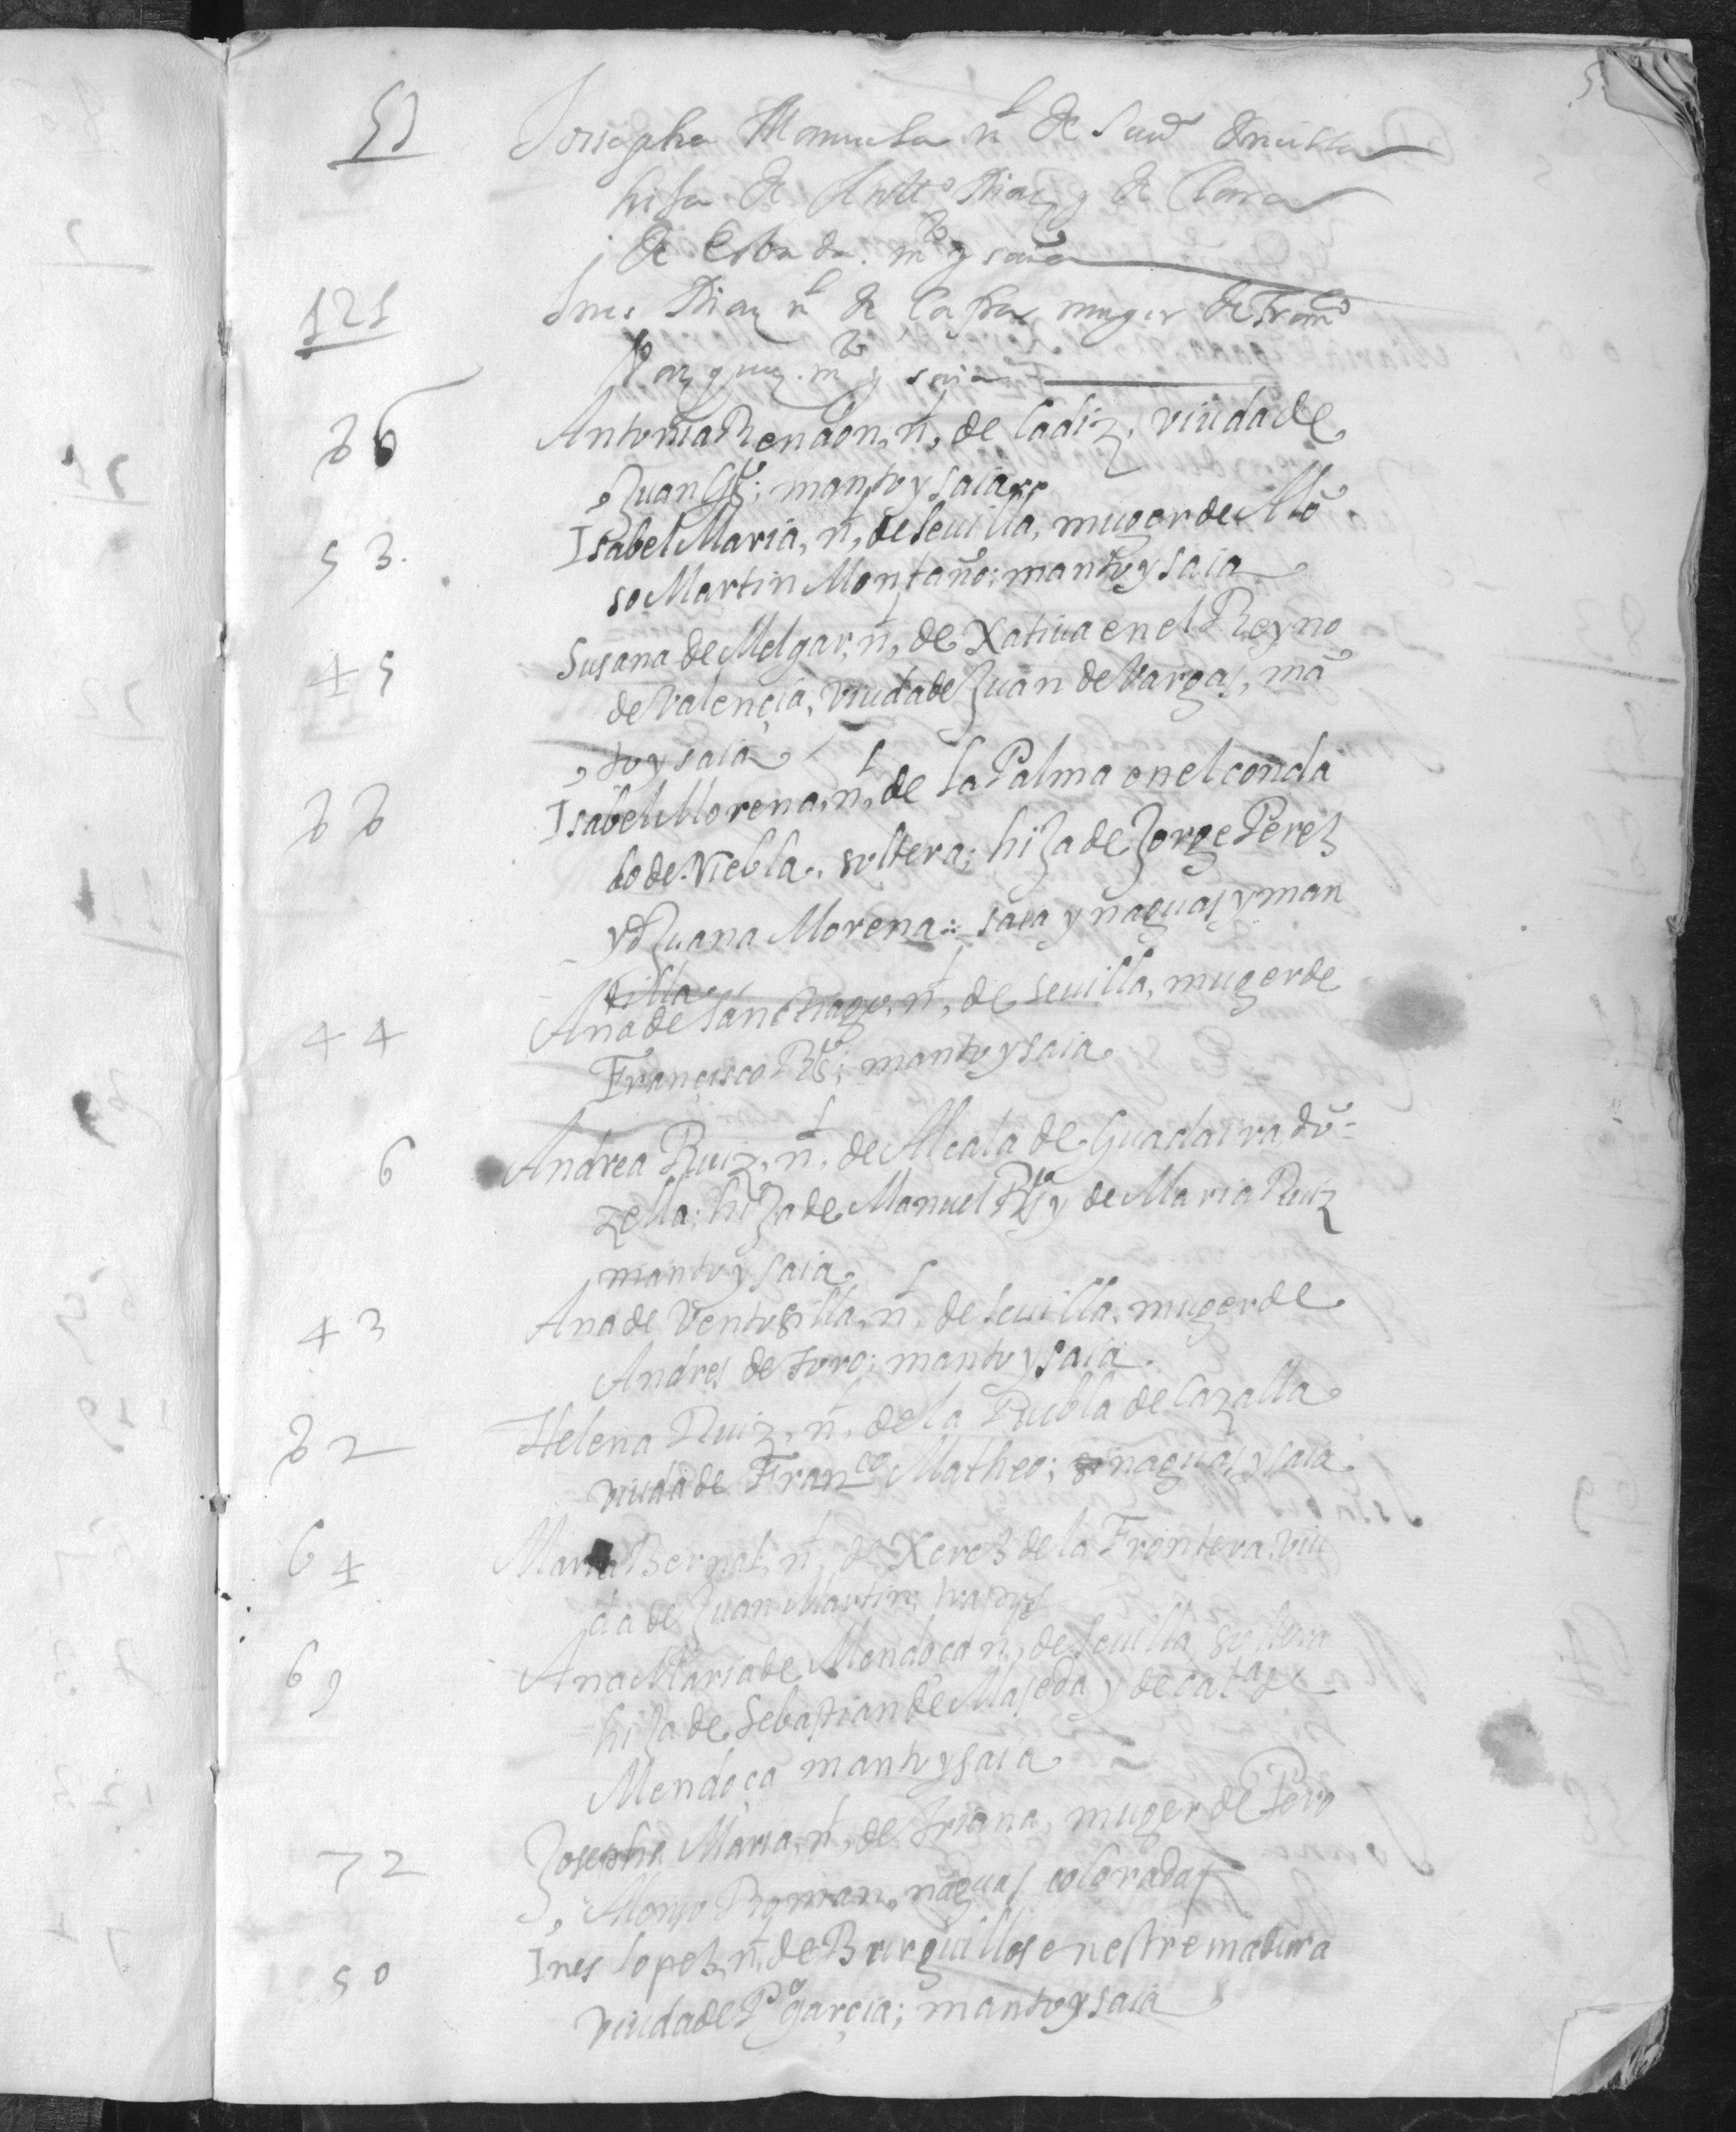 5
51 Jossepha Manuela nl de Seuilla
hija de Antto Diaz y de Clara
de Estrada. mto y saia
121 Ines Diaz nl de Cafra muger de Franco
Vazquez. mto y saia
26 Antonia Rendon, nl, de Cadiz, viuda de
Juan Gr̃z; manto y saia
53. Isabel Maria, nl, de Seuilla, muger de Alõ
so Martin Montaño; manto y saia
45 Susana de Melgar, nl, de Xatiua en el Reyno
de Valençia, viuda de Juan de Vargas, mã
to y saia
22 Isabel Morena, nl, de la Palma en el conda
do de Niebla, soltera; hija de Jorge Perez
y d Juana Morena: saia y naguas y man
tilla
44 Ana de Sanctiago, nl, de Seuilla, muger de
Françisco Rs; manto y saia
6 Andrea Ruiz, nl, de Alcala de Guadaira, dõ=
zella; hija de Manuel Rs y de Maria Ruiz
manto y saia
43 Ana de Ventosilla, nl, de Seuilla, muger de
Andres de toro; manto y saia.
22 Helena Ruiz, nl, de la Puebla de Cazalla
viuda de Franco Matheo; naguas y saia
64 Maria Bernal, nl, de Xerez de la Frontera, viu
da de Juan Martin;
69 Ana Maria de Mendoça nl, de Seuilla soltera
hija de Sebastian de Maseda y de cata de
Mendoça manto y saia
72 Josepha Maria, nl, de Triana, muger de Pero
Alonso Roman, naguas coloradas
50 Ines Lopez, nl, de Burguillos en estremadura
viuda de Po garçia; manto y saia